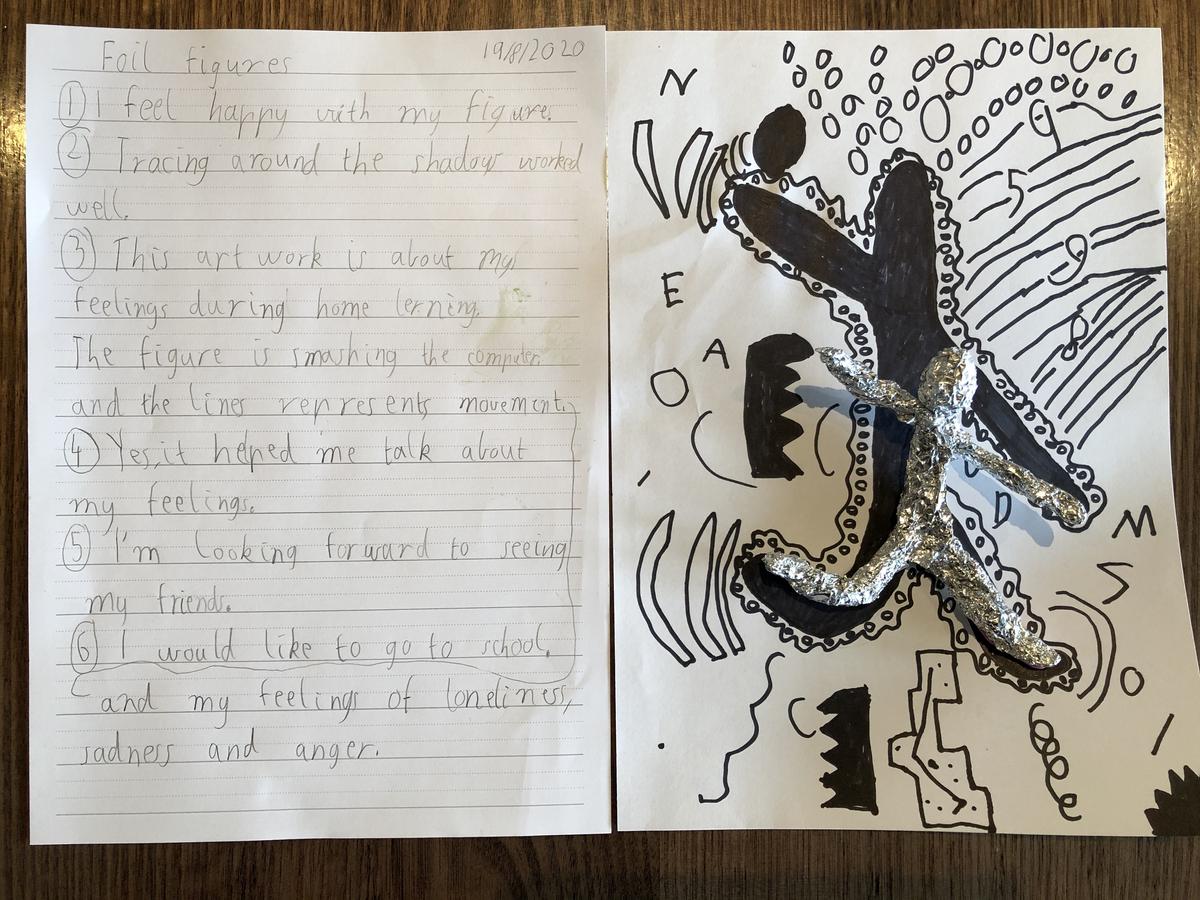 Foil figures 19/8/2020
① I feel happy with my figure.
② Tracing around the shadow worked
well.
③ This art work is about my
feelings during home lerning.
The figure is smashing the computer
and the lines represents movement.
④ Yes, it heped me talk about
my feelings.
⑤ I'm looking forward to seeing
my friends.
⑥ I would like to go to school.
and my feelings of loneliness,
sadness and anger.
N
9
5
9
8
E
A
O
D
M
S
O
C